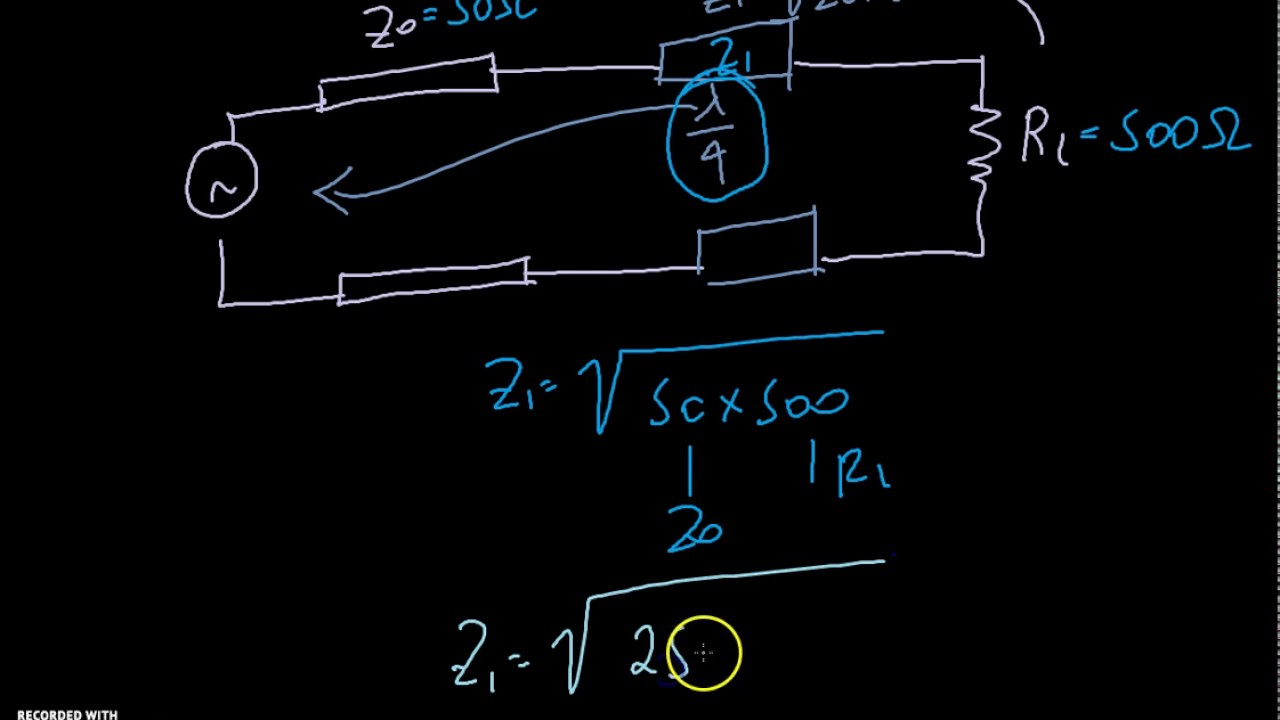 Z₀ = 50Ω
Z₁
λ/4
R₁ = 500Ω
~
Z₁ = √50 × 500
Z₀
R₁
Z₁ = √25
RECORDED WITH